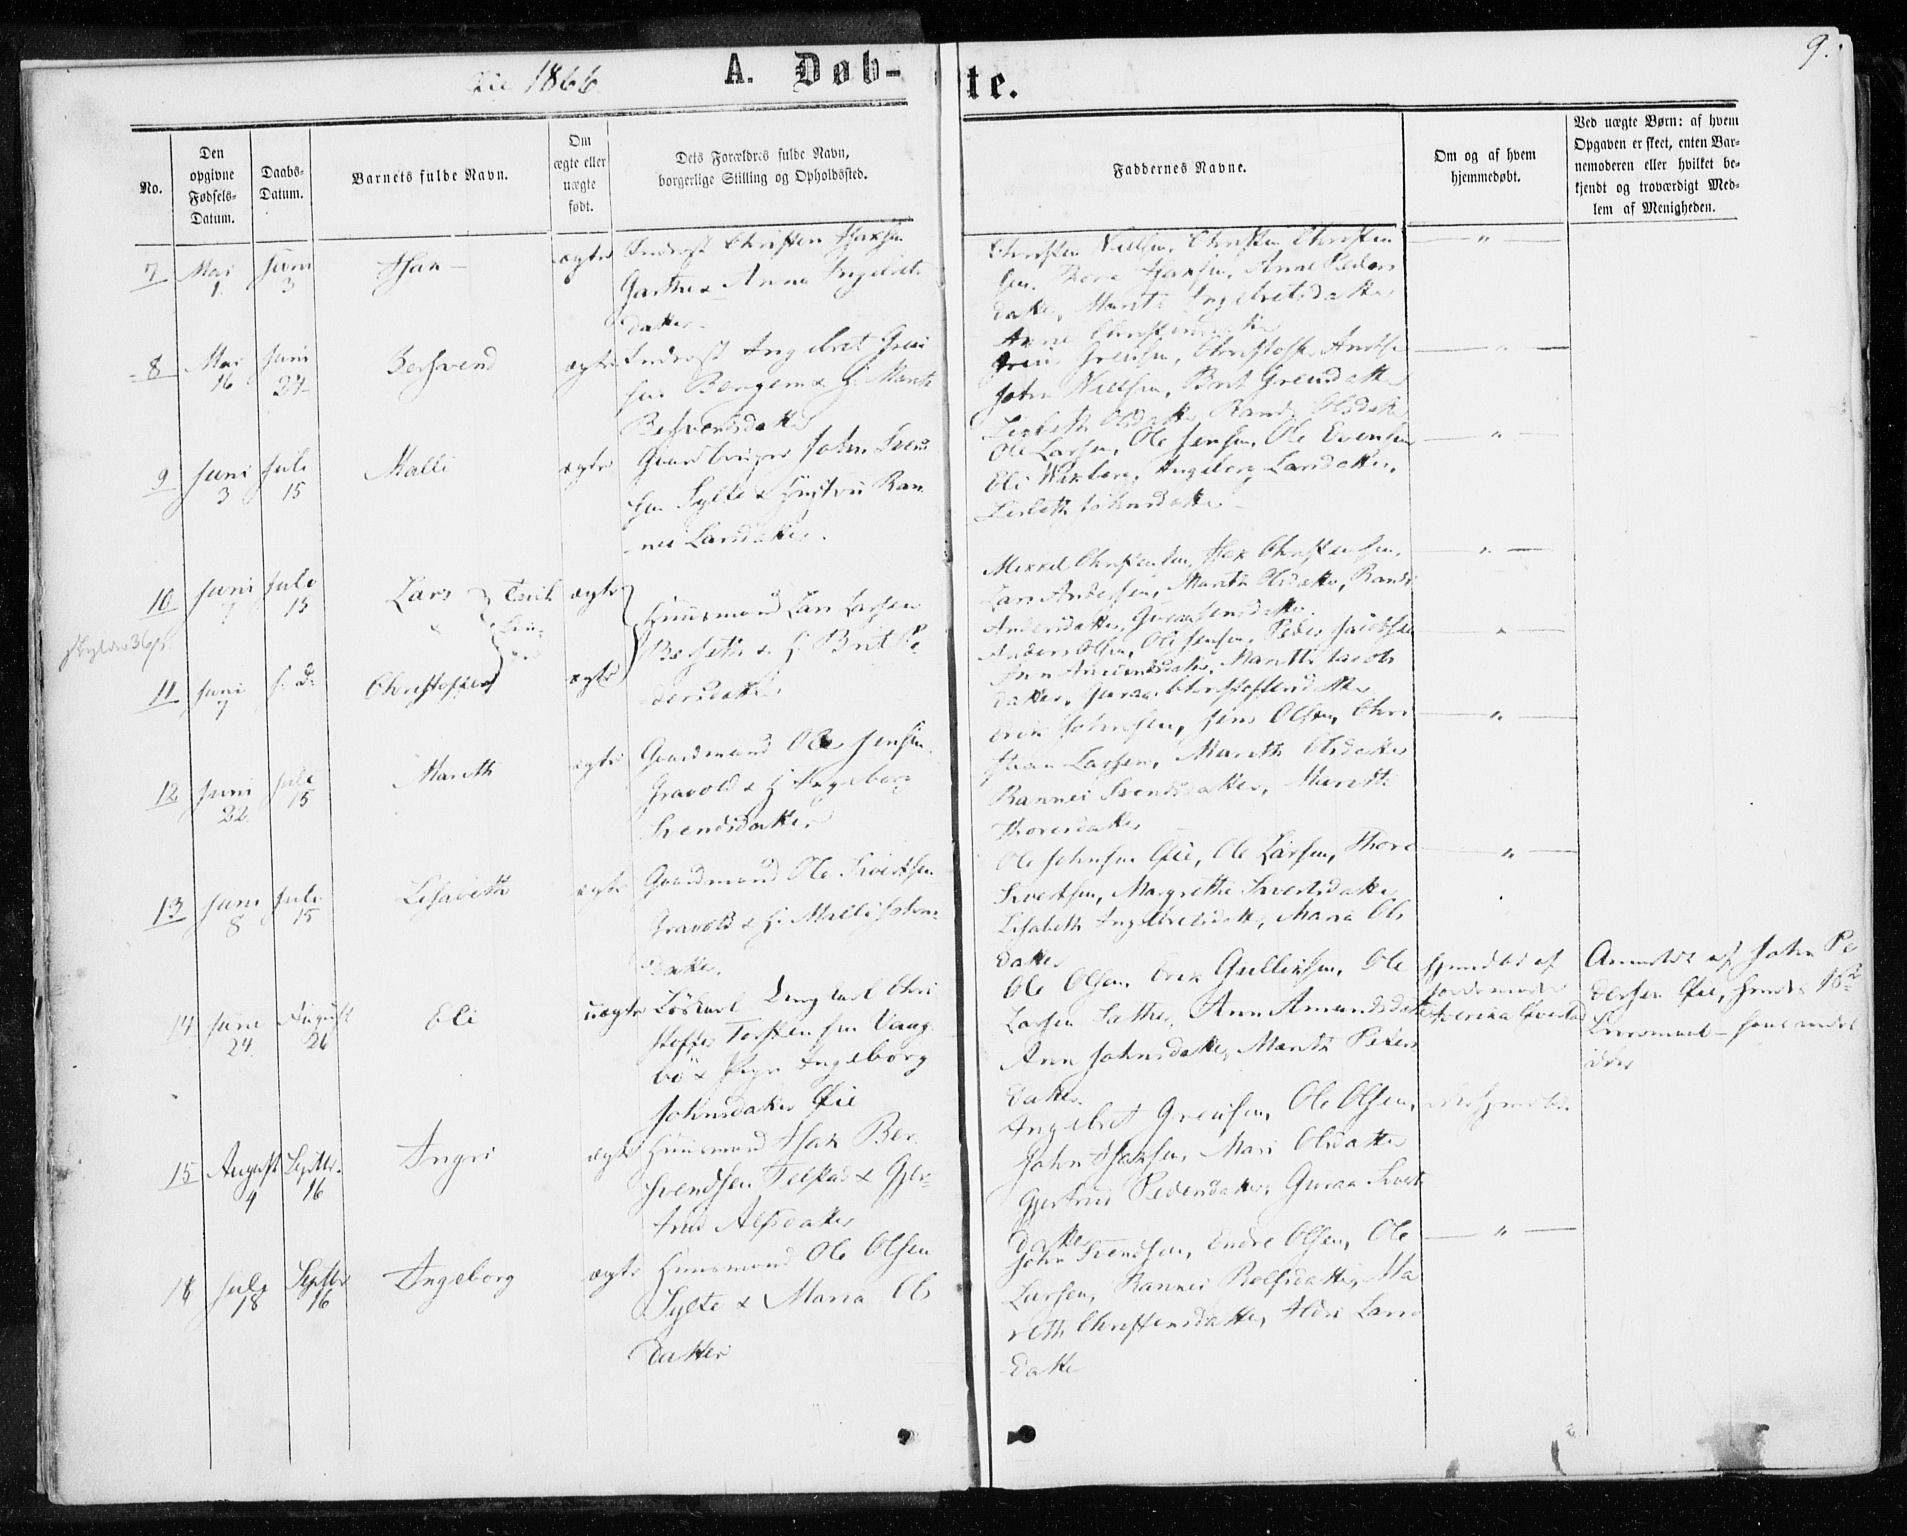 Øie 1866.
A. Døb-te.
9.
No.
Den opgivne Fødsels-Datum.
Daabs-Datum.
Barnets fulde Navn.
Om ægte eller uægte født.
Dets Forældres fulde Navn, borgerlige Stilling og Opholdssted.
Faddernes Navne.
Om og af hvem hjemmedøbt.
Ved uægte Børn: af hvem
Opgaven er skeet, enten Bar-
nemoderen eller hvilket be-
kjendt og troværdigt Med-
lem af Menigheden.
7 Mai 1 Juni 3 Isak ægte
Inderost Christen Isaksen
Garthe & Anne Ingebrets
datter
Christen Nielsen, Christen Christen
sen, Thore Isaksen, Anne Peders
datter, Marit Ingebretsdatter
Anne Christensdatter
— " —
8 Mai 16 Juni 24 Bersvend ægte
Inderost Ingebret Greii
sen Bergem & H. Marith
Bersvendsdatter
Greis Greisen, Christoffer
John Nielsen, Berit Greisdatter
Lisbeth Olsdatter, Randi Olsdatter
— " —
9 Juni 3 Juli 15 Malli ægte
Gaardbruger John Iver
sen Sylte & Hustru Ran
nei Larsdatter.
Ole Larsen, Ole Jensen, Ole Evensen
Eli Wikberg, Ingeborg Larsdatter,
Lisbeth Johnsdatter
— " —
10 Juni 7 Juli 15 Lars } Tvil ægte
&
{ lin-
ger
Huusmand Lars Larsen
Bø Seth & H. Brit Pe
dersdatter
Mikkel Christensen, Isak Christensen,
Lars Andersen, Marith Olsdatter, Randi
Andersdatter, Guraa Jensdatter.
— " —
11 Juni 7 s. D. Christoffer ægte
Anders Olsen, Ole Jensen, Peder Jacobsen
Ann Amundsdatter, Marith Jacobs
datter, Guraa Christoffersdatter
— " —
12 Juni 22 Juli 15 Marith ægte
Gaardmand Ole Jensen
Gravold & H. Ingeborg
Svendsdatter
Erik Johnsen, Jens Olsen, Chri
stian Larsen, Marith Olsdatter
Rannei Svendsdatter, Marith
Thoresdatter
— " —
13 Juni 8 Juli 15 Lisabeth ægte
Gaardmand Ole Sivertsen
Gravold & H. Malli John
datter.
Ole Johnsen Øie, Ole Larsen, Thore
Sivertsen, Margrethe Sivertsdatter
Lisabeth Ingebretsdatter, Maria Ols
datter
— " —
14 Juni 24 August 26 Eli uægte
Løskarl Ungkarl Chri
stoffer Torstensen Vaag
bø & Pige Ingeborg
Johnsdatter Øie
Ole Olsen, Erik Gulliksen, Ole
Larsen Sæther, Ann Amundsdatter
Ann Johnsdatter, Marith Peders
datter.
hjemdøbt af
Jordemoder
Anmeldt af John Pe
dersen Øie,
15 August 4 Septbr. 16 Ingri ægte
Huusmand Isak Ber
svendsen Tverstad & Gjer
trud Alfsdatter
Ingebret Greisen, Ole Olsen,
John Isaksen, Mari Olsdatter
Gjertrud Pedersdatter, Guraa Siverts
datter
ikke hjemdøbt.
16 Juli 18 Septbr 16 Ingeborg ægte
Huusmand Ole Olsen
Sylte & Maria Ols
datter
John Svendsen, Endre Olsen, Ole
Larsen, Rannei Rolfsdatter, Ma
reth Christensdatter, Lars
datter
— " —